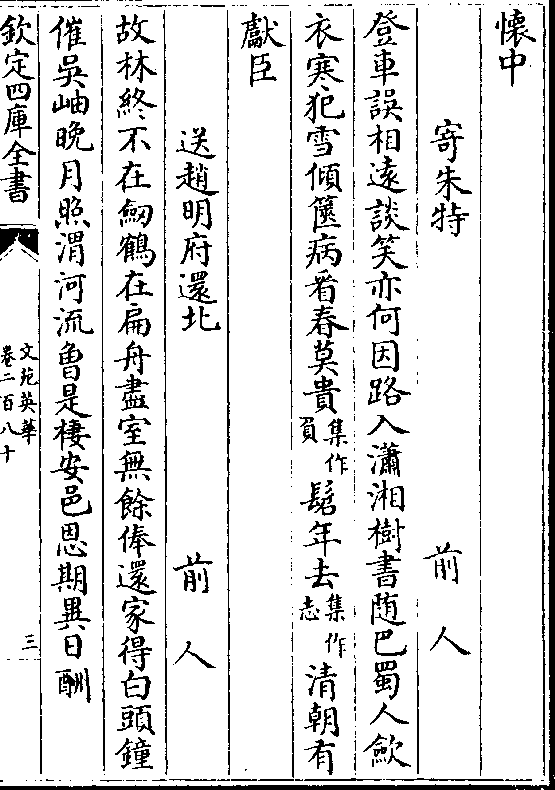 懷中
寄朱特　前人
登車誤相遠談笑亦何因路入瀟湘樹書随巴蜀人歛
衣寒犯雪傾篋病看春莫貴集作負髭年去集作志清朝有
獻臣
送趙明府還北　前人
故林終不在劒鶴在扁舟盡室無餘俸還家得白頭鐘
催吳岫晚月照渭河流曾是棲安邑恩期異日酬
欽定四庫全書
文苑英華
卷二百八十
三